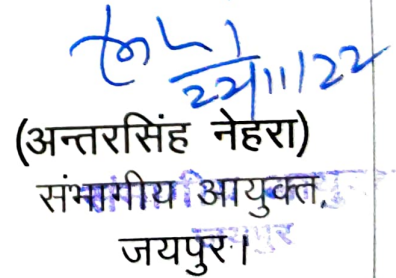 22/11/22
(अन्तरसिंह नेहरा)
संभागीय आयुक्त,
जयपुर।